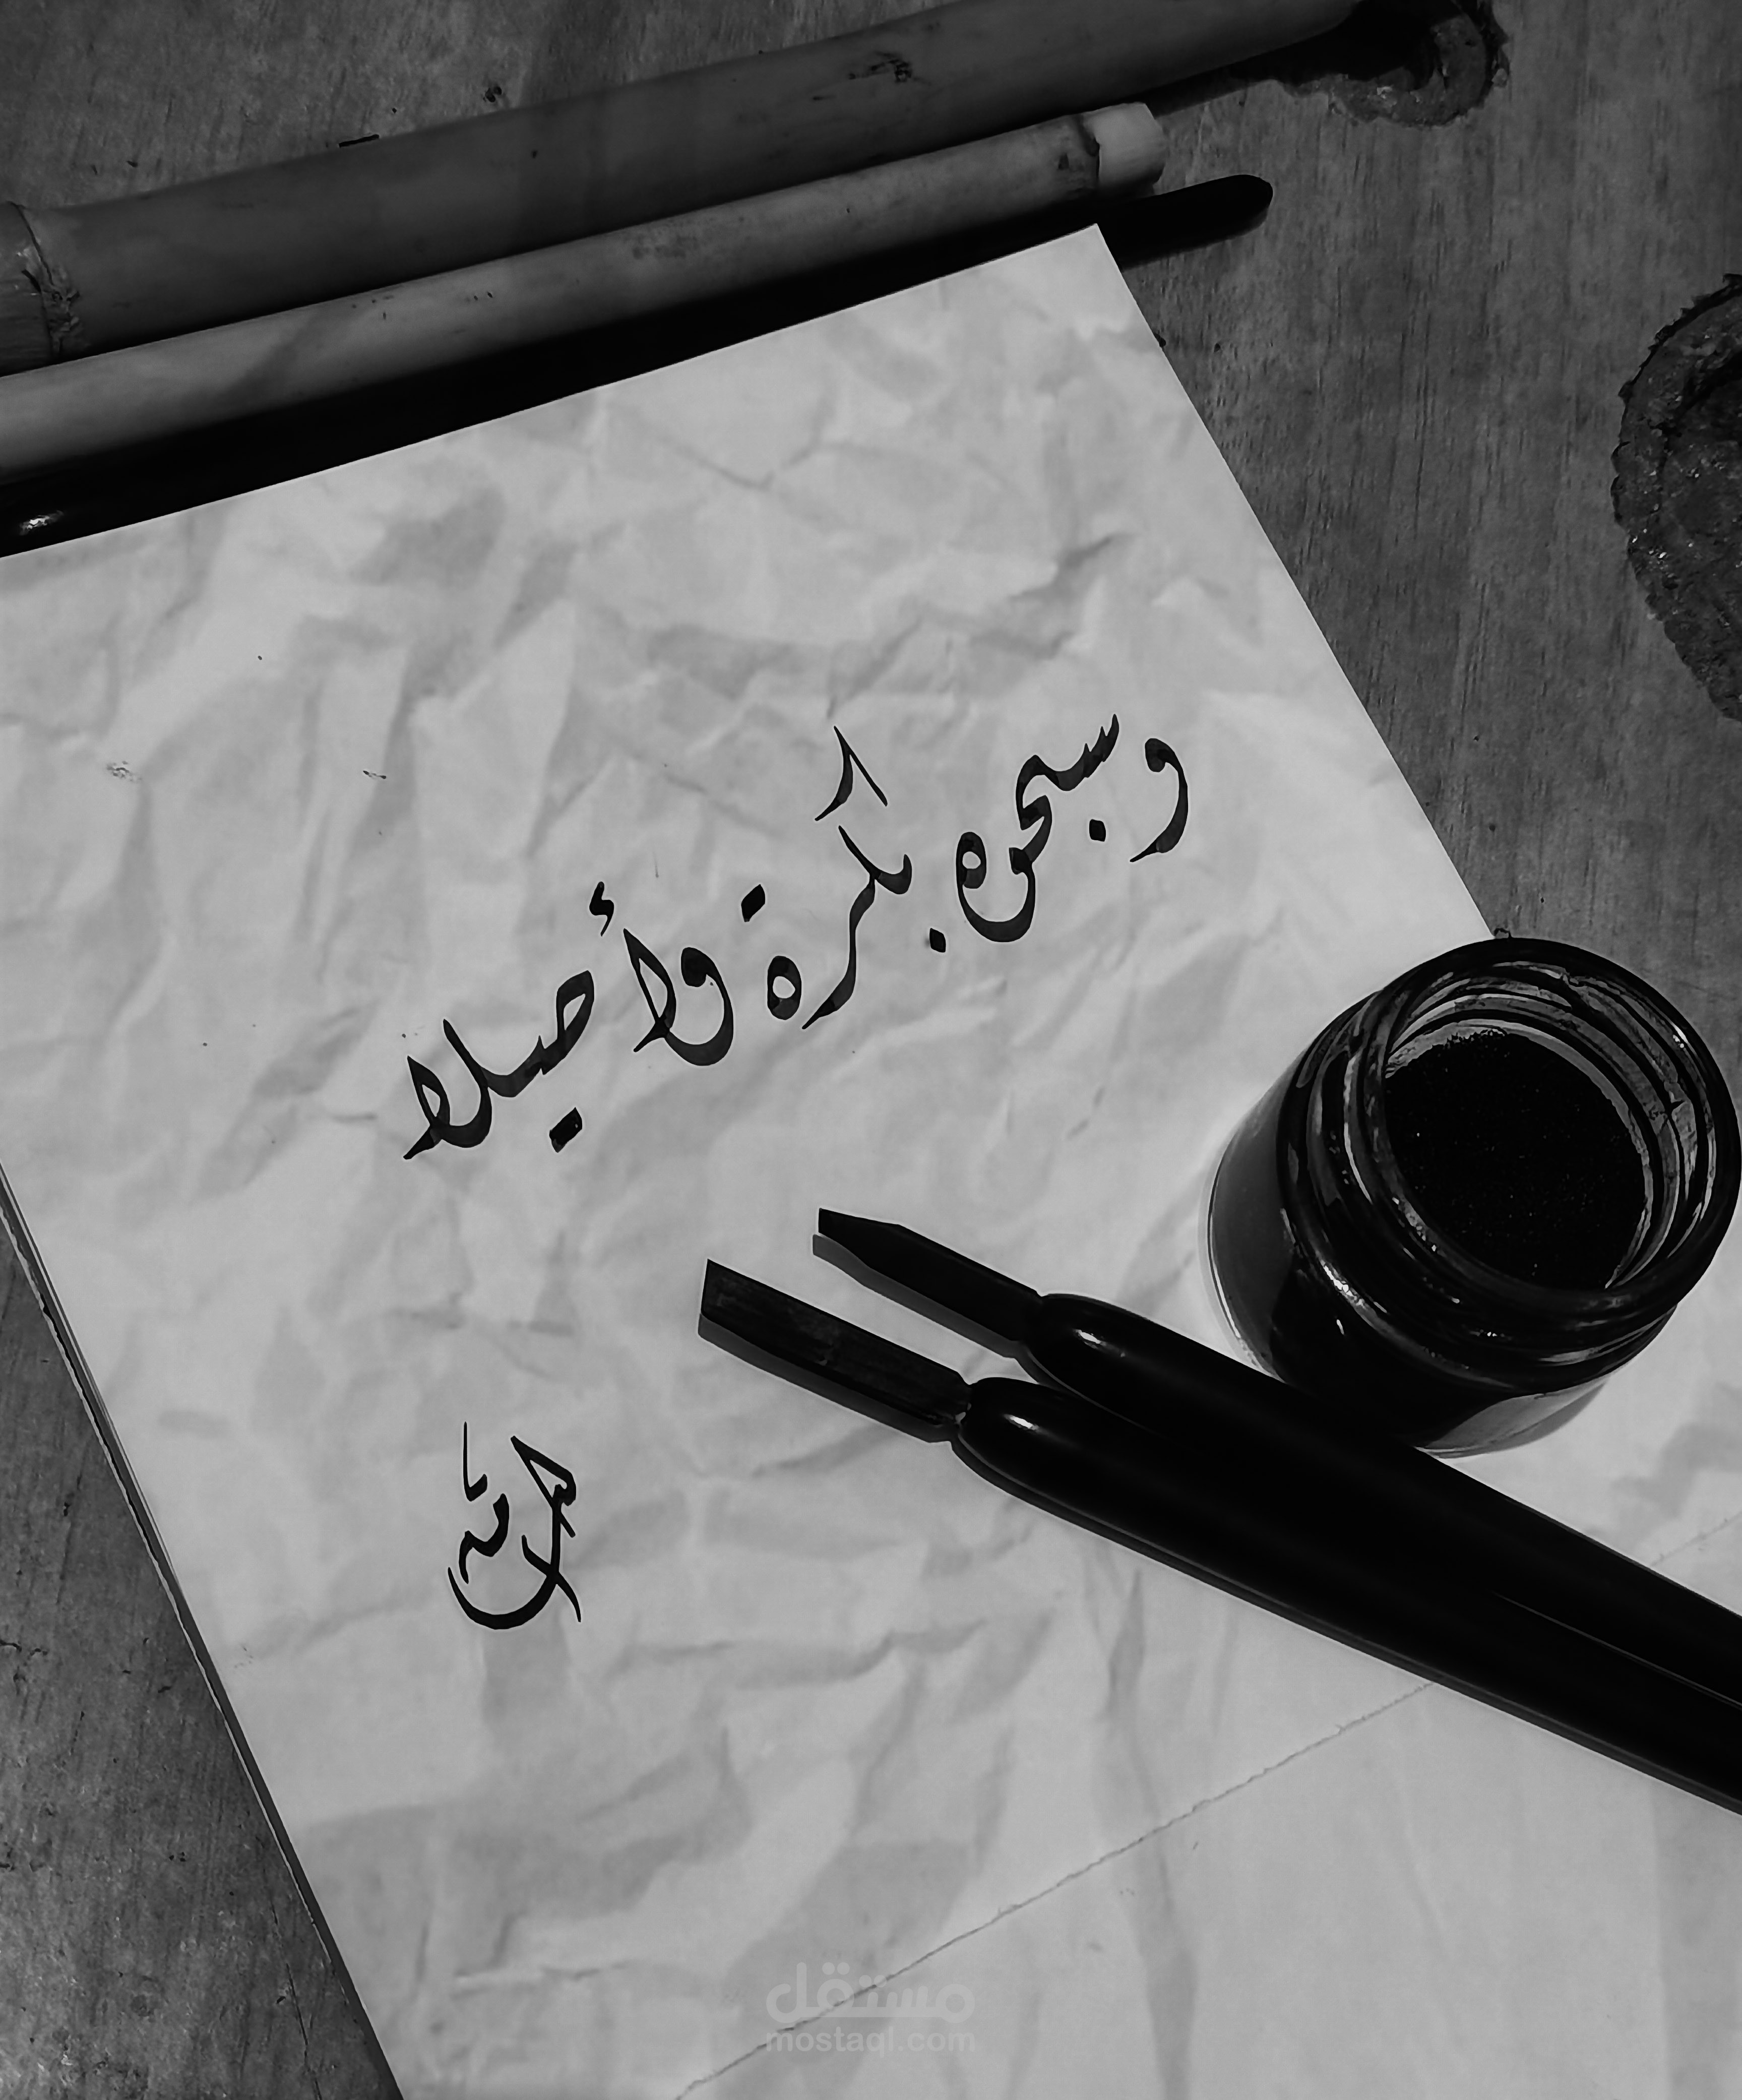 وسبحوه بكرة وأصيلا
مستقل
mostaql.com